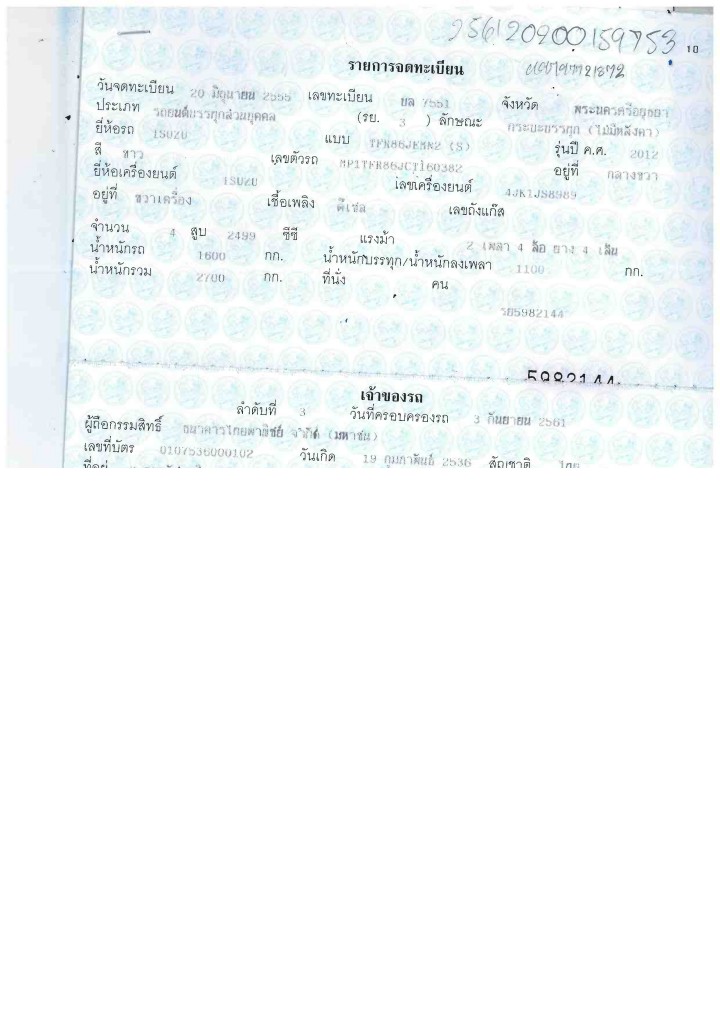 256120200159753 10
รายการจดทะเบียน
วันจดทะเบียน 20 มิถุนายน 2555 เลขทะเบียน ยล 7551 จังหวัด พระนครศรีอยุธยา
ประเภท รถยนต์บรรทุกส่วนบุคคล (รย. 3 ) ลักษณะ กระบะบรรทุก (ไม่มีหลังคา)
ยี่ห้อรถ ISUZU แบบ TFR86JEMN2 (S) รุ่นปี ค.ศ. 2012
สี ขาว เลขตัวรถ MP1TFR86JCT160382 อยู่ที่ กลางขวา
ยี่ห้อเครื่องยนต์ ISUZU เลขเครื่องยนต์ 4JK1JS8989
อยู่ที่ ขวาเครื่อง เชื้อเพลิง ดีเซล เลขถังแก๊ส
จำนวน 4 สูบ 2499 ซีซี แรงม้า 2 เพลา 4 ล้อ ยาง 4 เส้น
น้ำหนักรถ 1600 กก. น้ำหนักบรรทุก/น้ำหนักลงเพลา 1100 กก.
น้ำหนักรวม 2700 กก. ที่นั่ง คน
รย5982144
5982144
เจ้าของรถ
ลำดับที่ 3 วันที่ครอบครองรถ 3 กันยายน 2561
ผู้ถือกรรมสิทธิ์ ธนาคารไทยพาณิชย์ จำกัด (มหาชน)
เลขที่บัตร 0107536000102 วันเกิด 19 กุมภาพันธ์ 2536 สัญชาติ ไทย
ที่อยู่